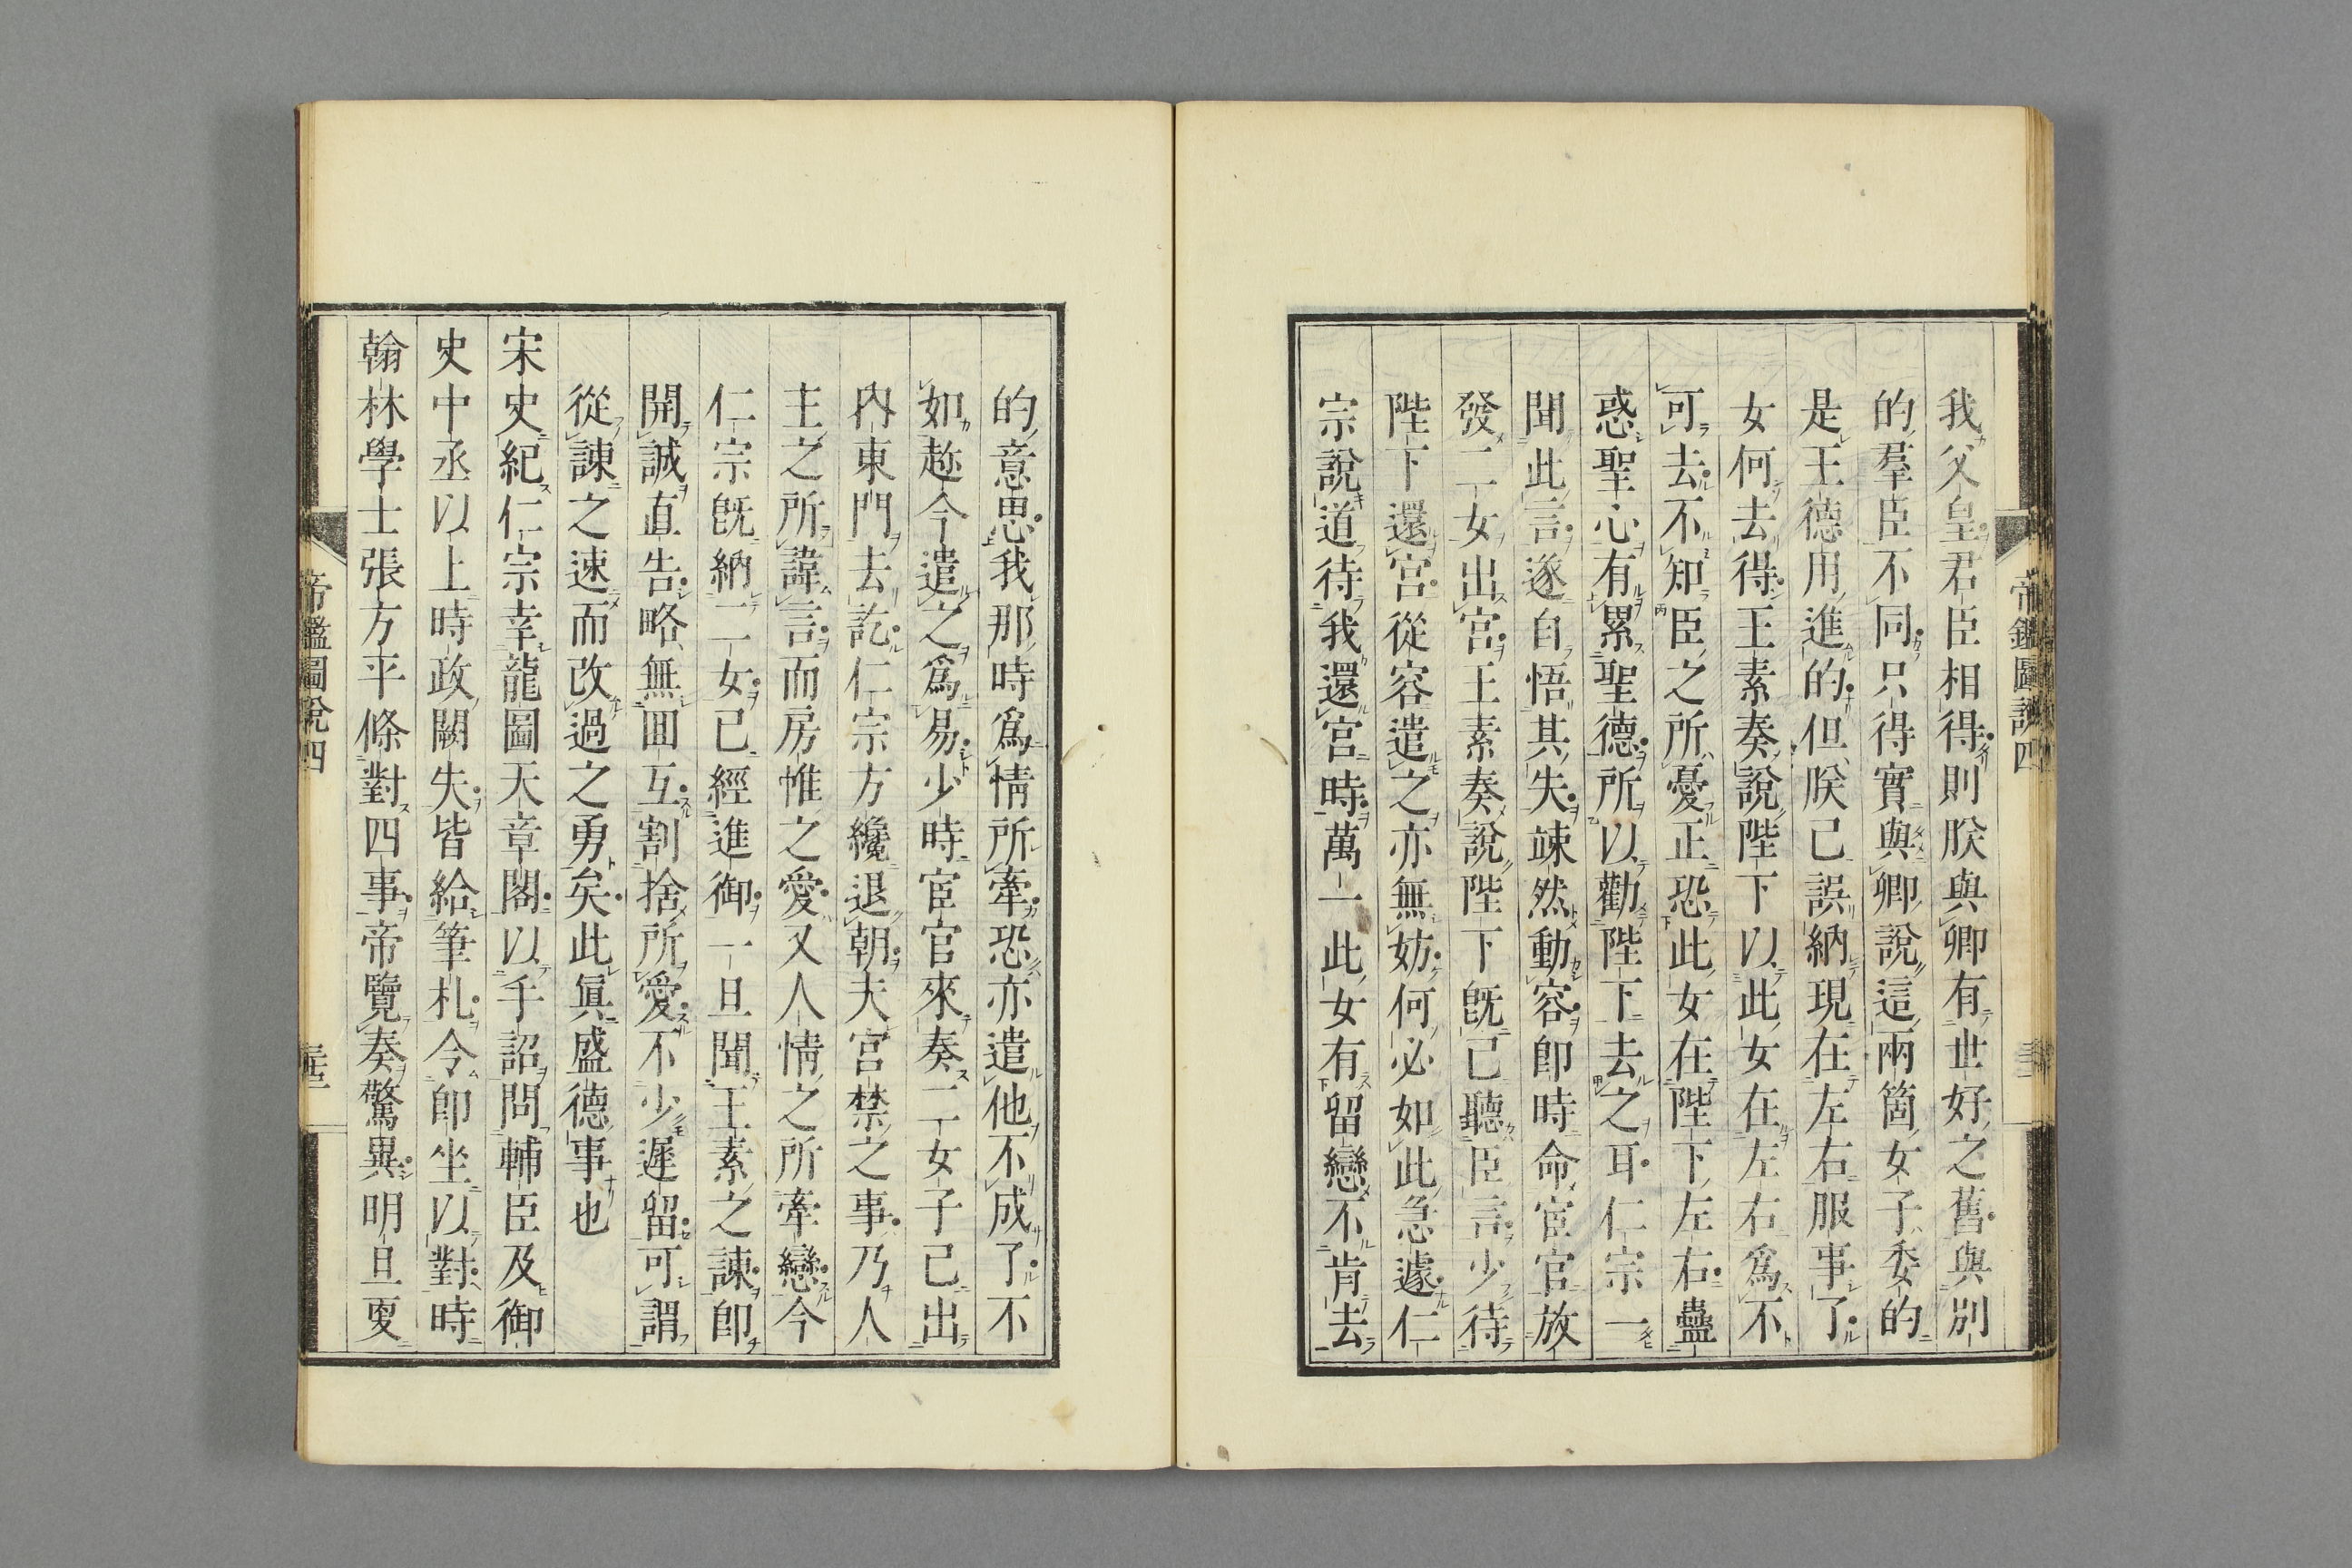 帝鑑圖說四
我父皇君臣相得則朕與卿有世好之舊與別
的羣臣不同只得實與卿說這兩箇女子委的
是王德用進的但朕已誤納現在左右服事了
女何去得王素奏說陛下以此女在左右爲不
可去不知臣之所憂正恐此女在陛下左右蠱
惑聖心有累聖德所以勸陛下去之耳仁宗一
聞此言遂自悟其失竦然動容卽時命宦官放
發二女出宮王素奏說陛下旣已聽臣言少待
陛下還宮從容遣之亦無妨何必如此急遽仁
宗說道待我還宮時萬一此女有留戀不肯去
的意思我那時爲情所牽恐亦遣他不成了不
如趂今遣之爲易少時宦官來奏二女子已出
內東門去訖仁宗方纔退朝夫宮禁之事乃人
主之所諱言而房帷之愛又人情之所牽戀今
仁宗旣納二女已經進御一旦聞王素之諫卽
開誠直告略無囬互割捨所愛不少遲留可謂
從諫之速而改過之勇矣此眞盛德事也
宋史紀仁宗幸龍圖天章閣以手詔問輔臣及御
史中丞以上時政闕失皆給筆札令卽坐以對時
翰林學士張方平條對四事帝覽奏驚異明旦更
帝鑑圖說四